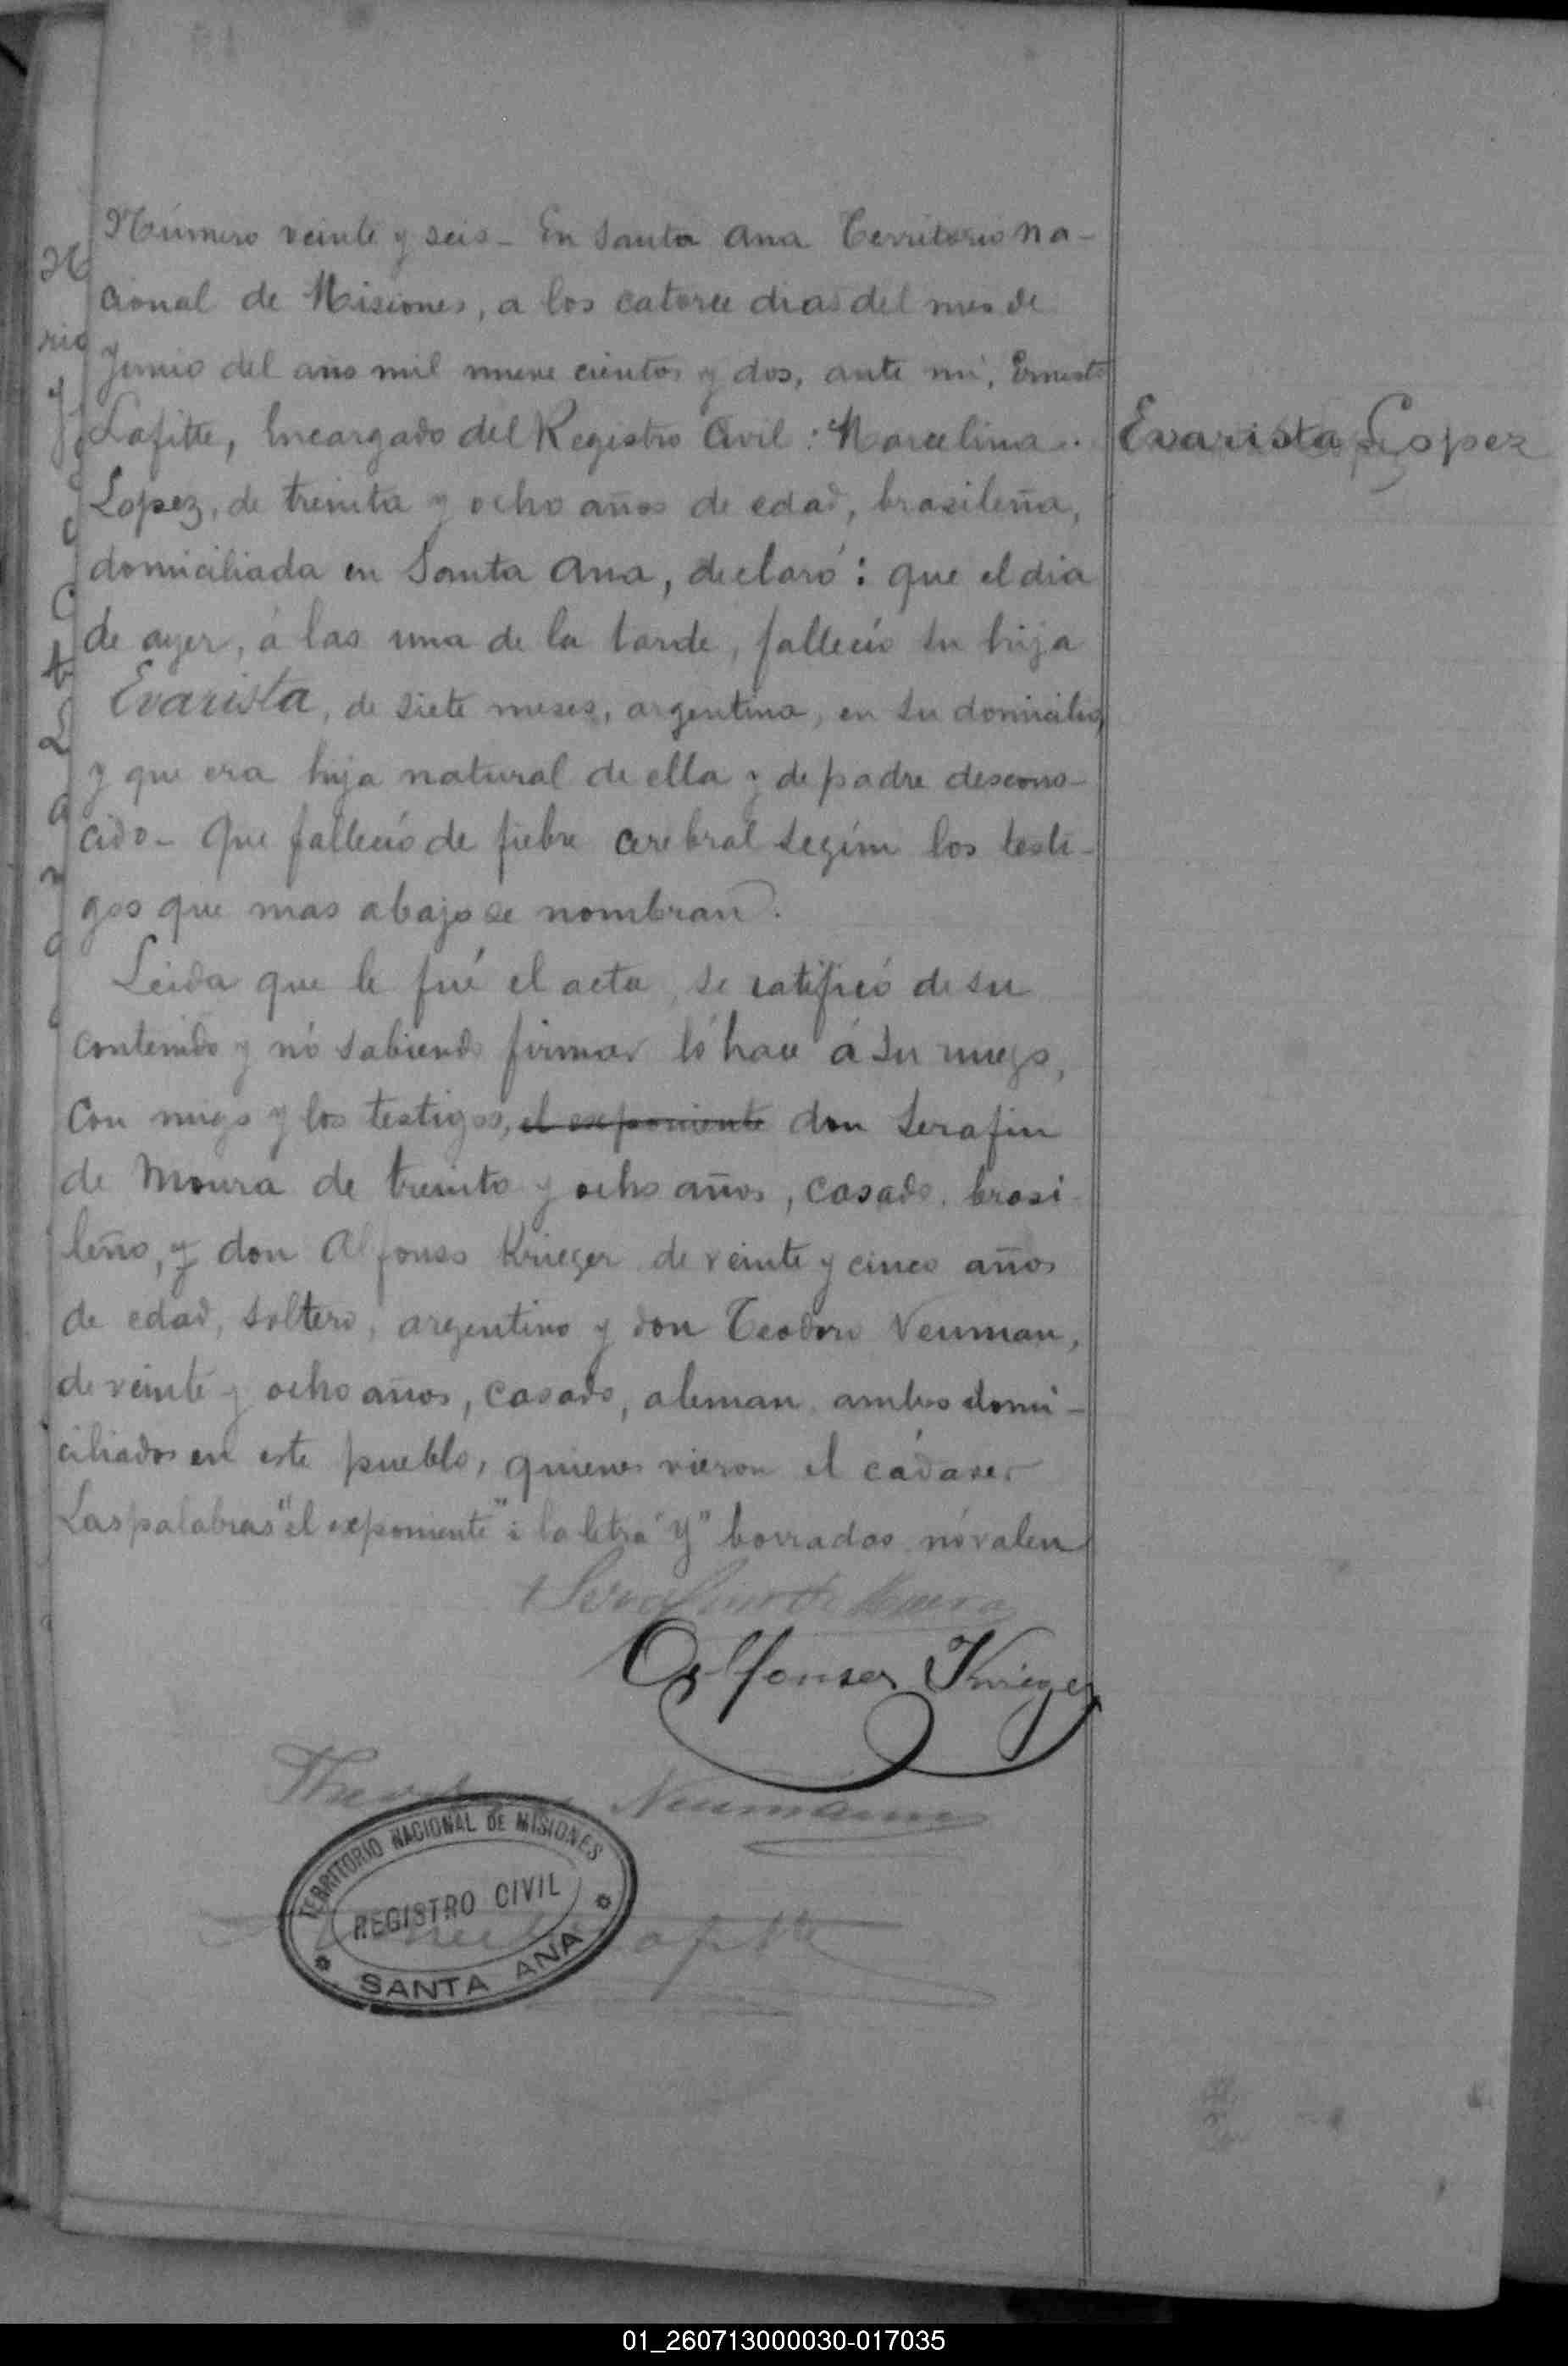 Número veinte y seis - En Santa Ana Territorio Na-
cional de Misiones, a los catorce dias del mes de
Junio del año mil nueve cientos y dos, ante mi, Ernesto
Lafitte, Encargado del Registro Civil: Marcelina
Lopez, de treinta y ocho años de edad, brasileña,
domiciliada en Santa Ana, declaró: que el dia
de ayer, á las una de la tarde, falleció su hija
Evarista, de siete meses, argentina, en su domicilio,
y que era hija natural de ella y de padre descono-
cido - Que falleció de fiebre cerebral según los testi-
gos que mas abajo se nombran.
Leida que le fué el acta, se ratificó de su
contenido y nó sabiendo firmar ló hace á su ruego,
con migo y los testigos, el exponiente don Serafin
de Moura de treinta y ocho años, casado, brasi-
leño, y don Alfonso Krieger de veinte y cinco años
de edad, soltero, argentino y don Teodoro Neuman,
de veinte y ocho años, casado, aleman, ambos domi-
ciliados en este pueblo, quienes vieron el cádaver
Las palabras "el exponiente" i la letra "y" borradas nó valen
Evarista Lopez
Serafin de Moura
Alfonso Krieger
Neumann
TERRITORIO NACIONAL DE MISIONES
REGISTRO CIVIL
SANTA ANA
Lafitte
01_260713000030-017035